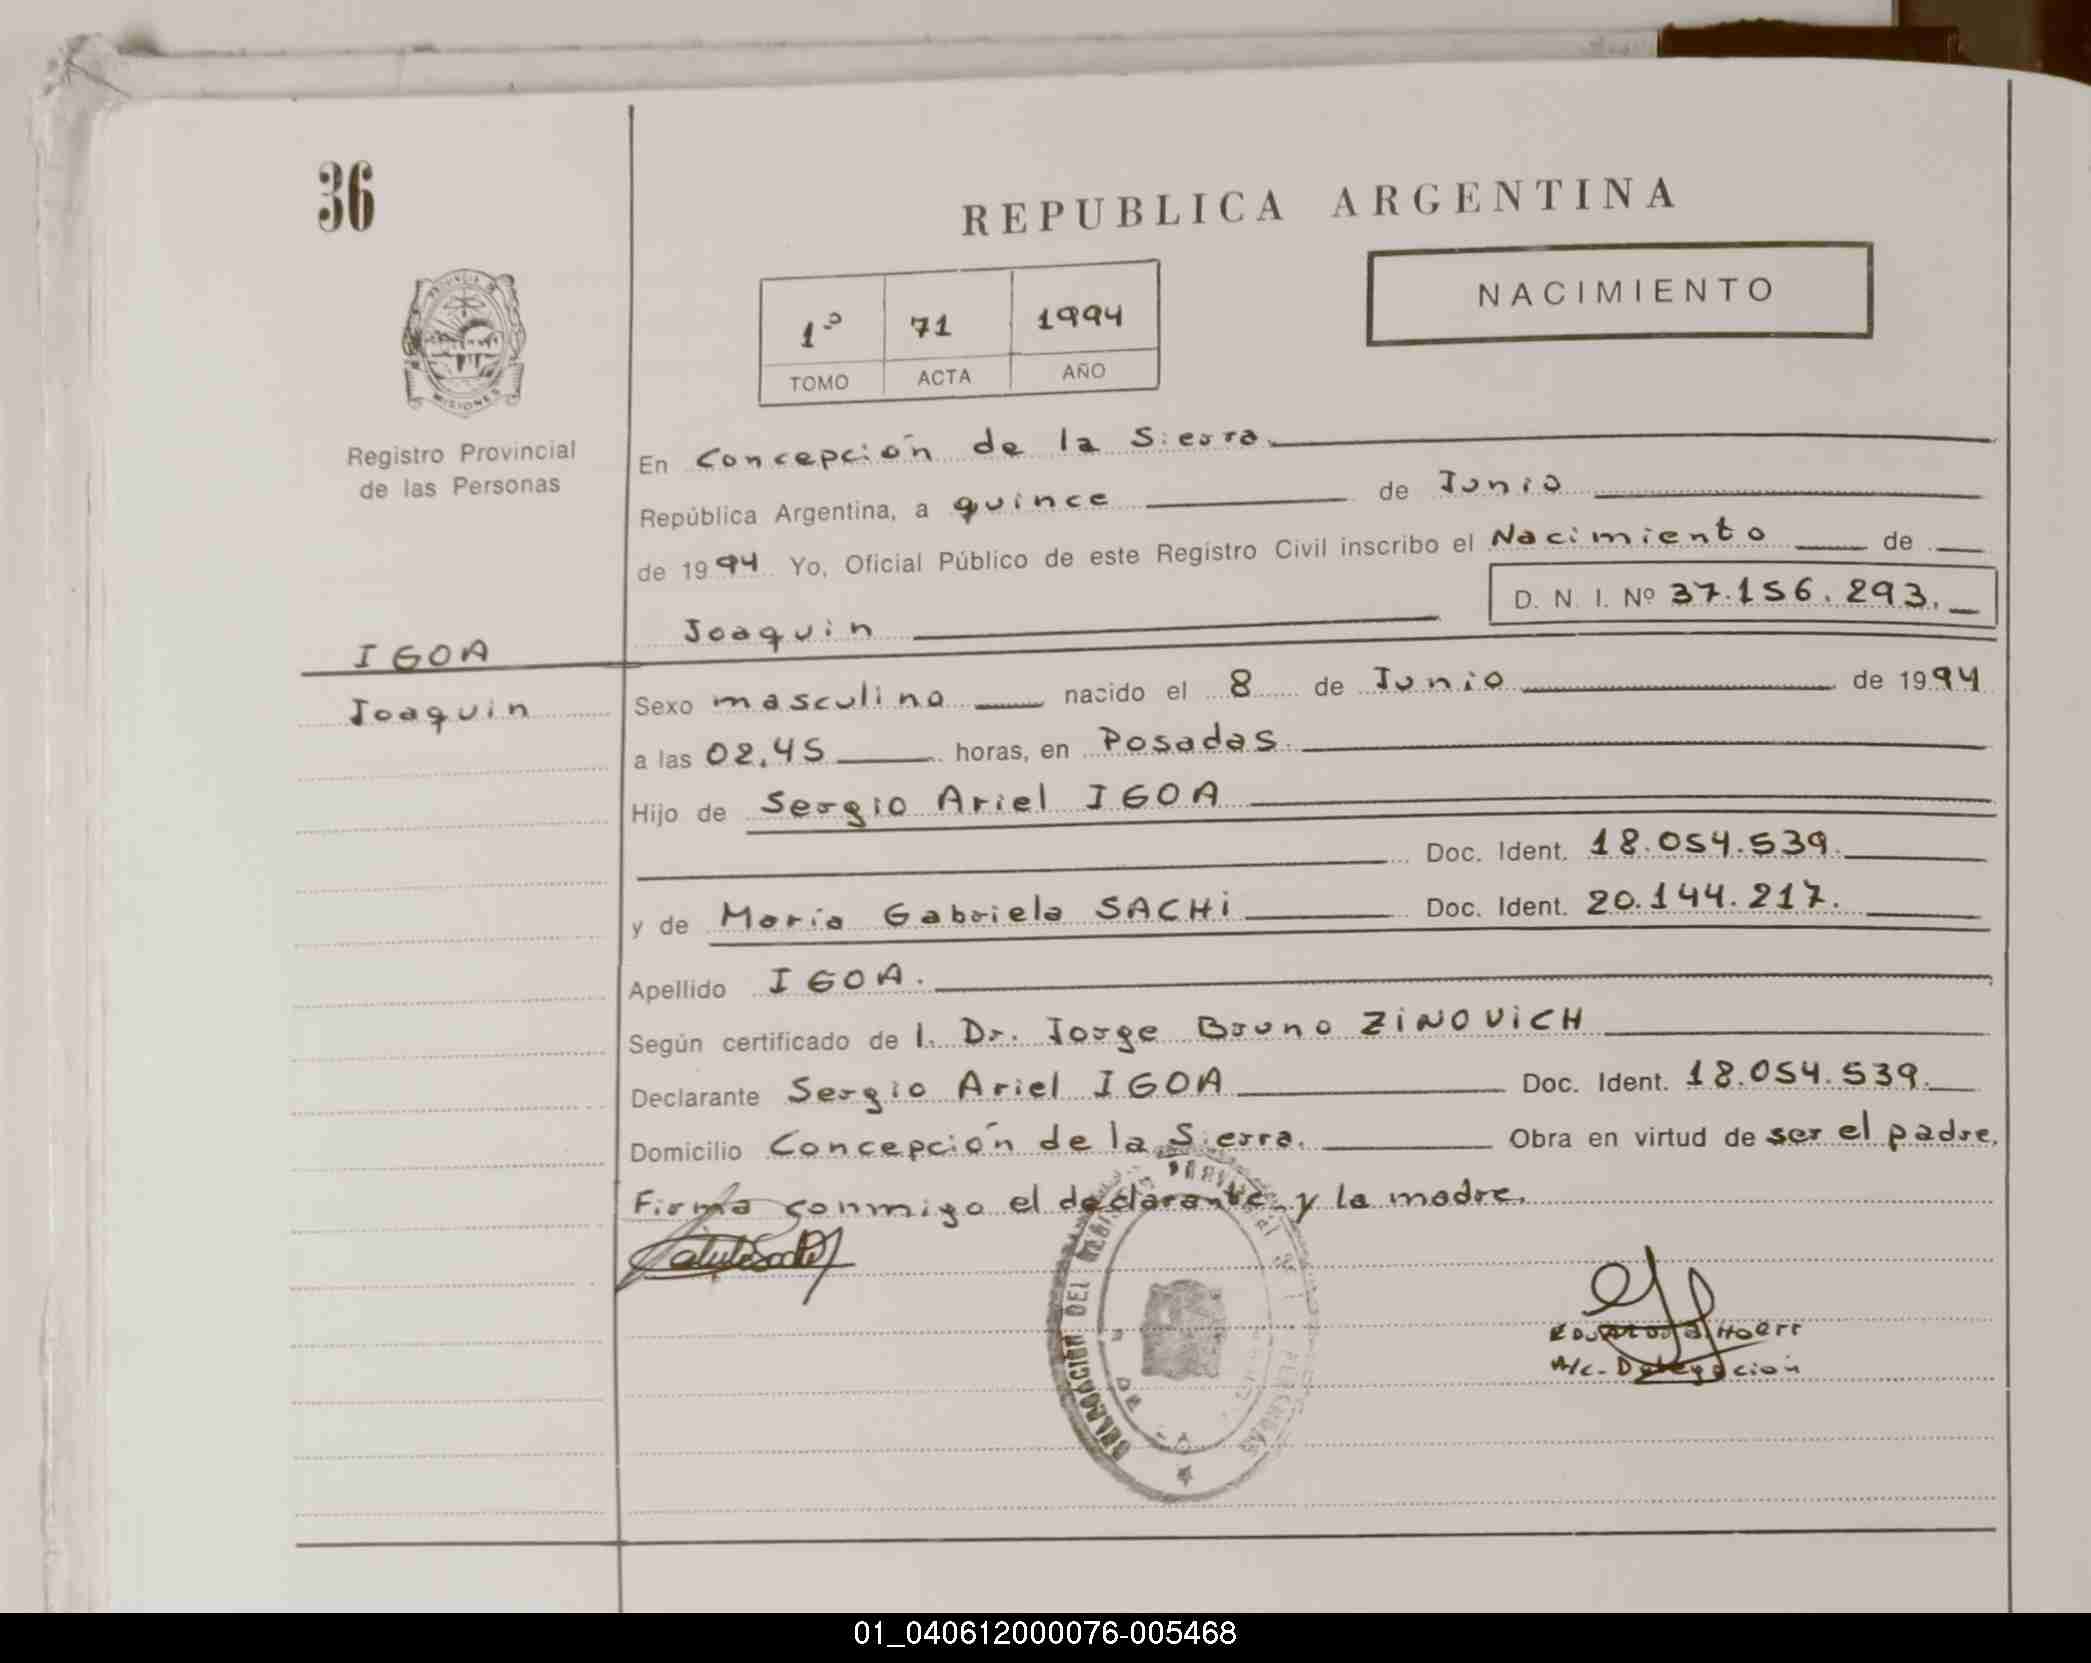 36
REPUBLICA ARGENTINA
NACIMIENTO
1º 71 1994
TOMO ACTA AÑO
PROVINCIA DE MISIONES
Registro Provincial
de las Personas
En Concepción de la Sierra.
República Argentina, a quince de Junio
de 1994 Yo, Oficial Público de este Registro Civil inscribo el Nacimiento de
D. N. I. Nº 37.156.293.
Joaquin
IGOA
Joaquin
Sexo masculino nacido el 8 de Junio de 1994
a las 02.45 horas, en Posadas.
Hijo de Sergio Ariel IGOA
Doc. Ident. 18.054.539.
y de María Gabriela SACHi Doc. Ident. 20.144.217.
Apellido IGOA.
Según certificado de l. Dr. Jorge Bruno ZiNOViCH
Declarante Sergio Ariel IGOA Doc. Ident. 18.054.539.
Domicilio Concepción de la Sierra. Obra en virtud de ser el padre.
Firma conmigo el declarante y la madre.
DELEGACION DEL REGISTRO PROVINCIAL DE LAS PERSONAS
A/c. Delegación
01_040612000076-005468